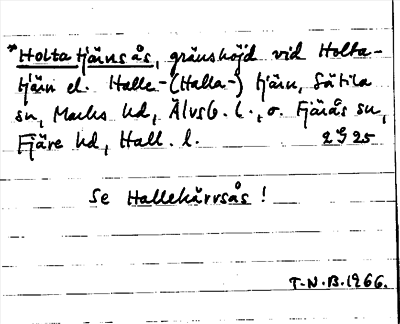 *Holta tjärnsås, gränshöjd vid Holta-
tjärn el. Halle-(Halla-) tjärn, Sätila
sn, Marks hd, Älvsb. l., o. Fjärås sn,
Fjäre hd, Hall. l. 2 G 25
Se Hallekärrsås!
T.N.B.1966.